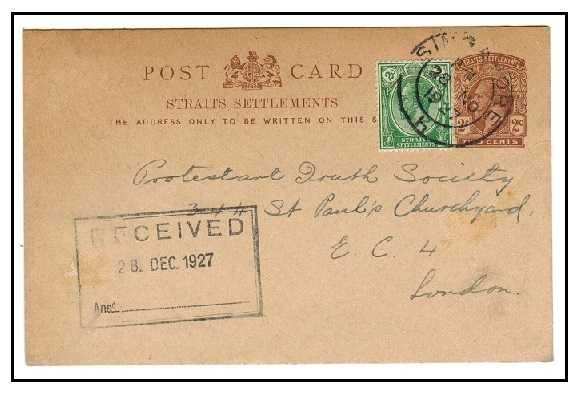 POST CARD
STRAITS SETTLEMENTS
THE ADDRESS ONLY TO BE WRITTEN ON THIS S
STRAITS SETTLEMENTS
2c
STRAITS SETTLEMENTS
CENTS
SINGAPORE
Protestant Truth Society
3 & 4 St Paul's Churchyard,
E. C. 4
London.
RECEIVED
28. DEC. 1927
Ansd